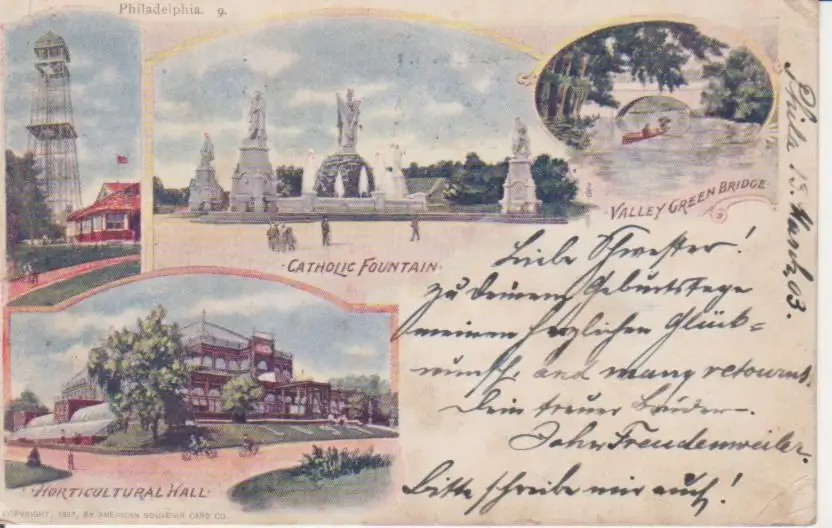 Philadelphia. 9.
VALLEY GREEN BRIDGE
CATHOLIC FOUNTAIN
HORTICULTURAL HALL
COPYRIGHT, 1897, BY AMERICAN SOUVENIR CARD CO.
Phila 15 March 03.
Liebe Schwester!
zu Deinem Geburtstage
meinen herzlichen Glück-
wunsch, and many retourns.
Dein treuer Bruder.
John Freudenweiler.
Bitte schreibe mir auch!